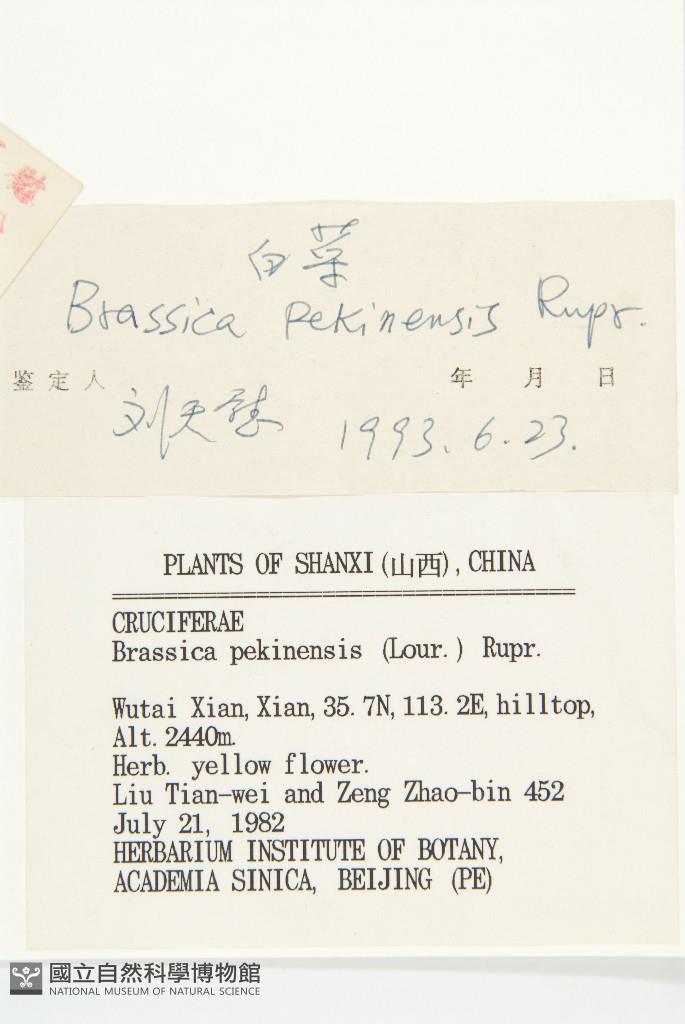 白菜
Brassica pekinensis Rupr.
鉴定人 年 月 日
刘天慰 1993.6.23.
PLANTS OF SHANXI(山西), CHINA
CRUCIFERAE
Brassica pekinensis (Lour.) Rupr.
Wutai Xian, Xian, 35. 7N, 113. 2E, hilltop,
Alt. 2440m.
Herb. yellow flower.
Liu Tian-wei and Zeng Zhao-bin 452
July 21, 1982
HERBARIUM INSTITUTE OF BOTANY,
ACADEMIA SINICA, BEIJING (PE)
國立自然科學博物館
NATIONAL MUSEUM OF NATURAL SCIENCE